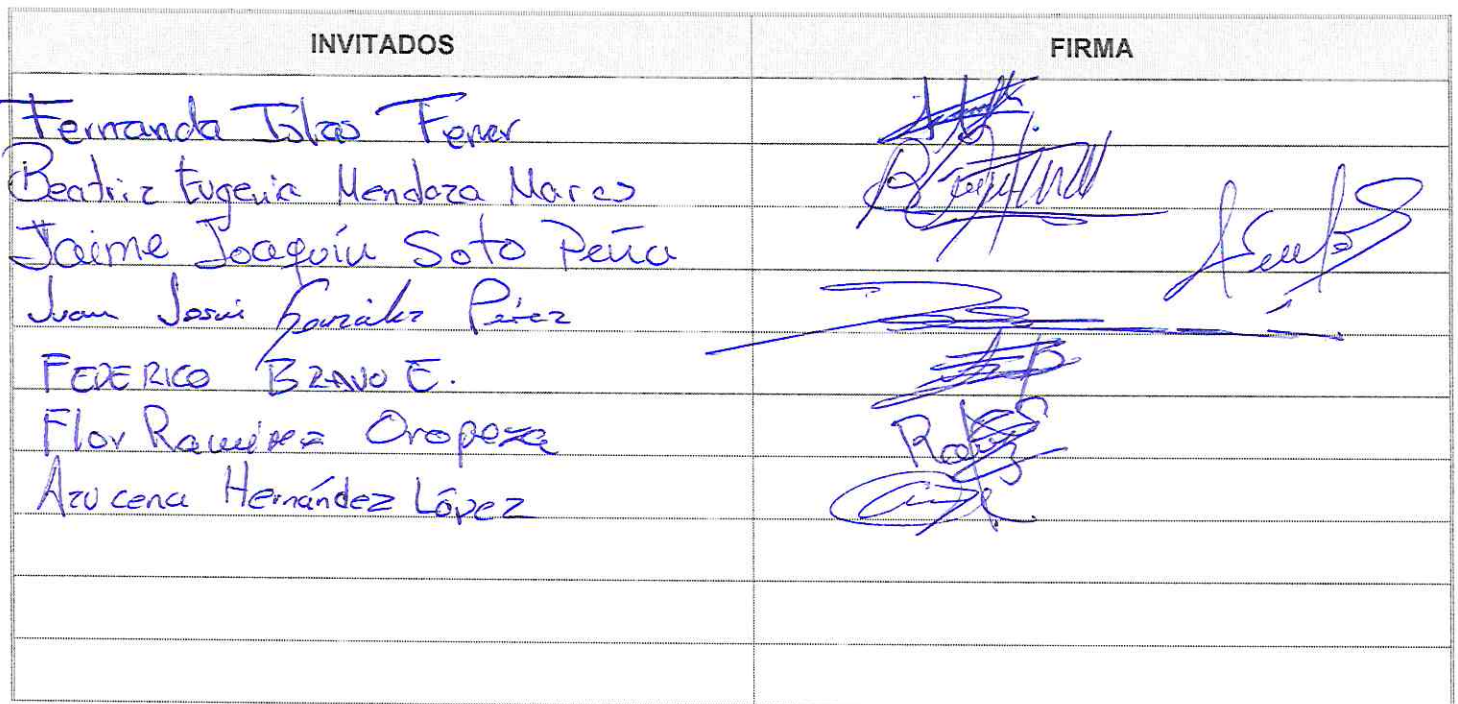 INVITADOS FIRMA
Fernanda Islas Ferrer
Beatriz Eugenia Mendoza
Jaime Joaquín Soto Peña
Juan Josué González Pérez
FEDERICO BRAVO E.
Flor Ramírez Oropeza
Azucena Hernández López